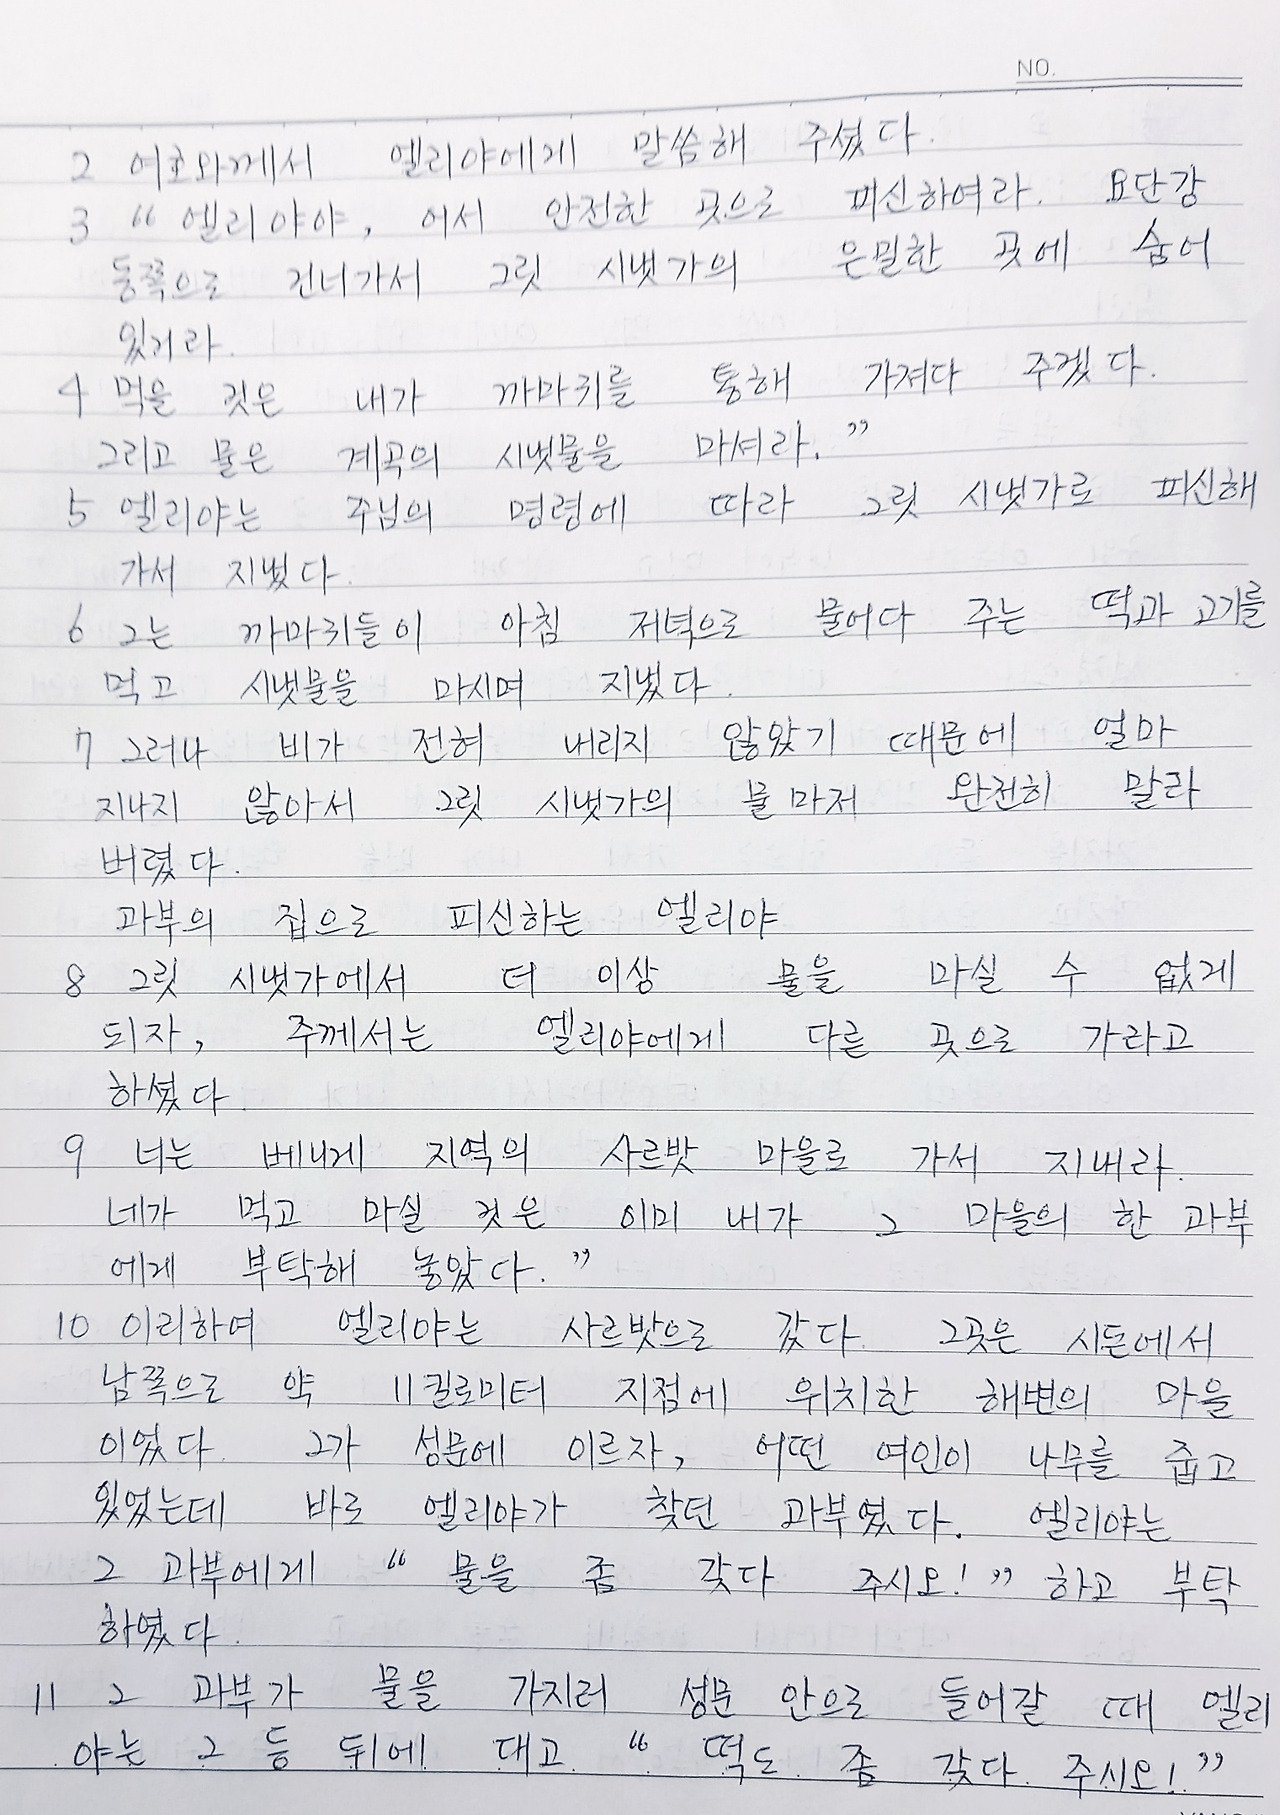 NO.
2 여호와께서 엘리야에게 말씀해 주셨다.
3 “엘리야야, 어서 안전한 곳으로 피신하여라. 요단강
동쪽으로 건너가서 그릿 시냇가의 은밀한 곳에 숨어
있거라.
4 먹을 것은 내가 까마귀를 통해 가져다 주겠다.
그리고 물은 계곡의 시냇물을 마셔라.”
5 엘리야는 주님의 명령에 따라 그릿 시냇가로 피신해
가서 지냈다.
6 그는 까마귀들이 아침 저녁으로 물어다 주는 떡과 고기를
먹고 시냇물을 마시며 지냈다.
7 그러나 비가 전혀 내리지 않았기 때문에 얼마
지나지 않아서 그릿 시냇가의 물마저 완전히 말라
버렸다.
과부의 집으로 피신하는 엘리야
8 그릿 시냇가에서 더 이상 물을 마실 수 없게
되자, 주께서는 엘리야에게 다른 곳으로 가라고
하셨다.
9 너는 베니게 지역의 사르밧 마을로 가서 지내라.
네가 먹고 마실 것은 이미 내가 그 마을의 한 과부
에게 부탁해 놓았다.”
10 이리하여 엘리야는 사르밧으로 갔다. 그곳은 시돈에서
남쪽으로 약 11킬로미터 지점에 위치한 해변의 마을
이었다. 그가 성문에 이르자, 어떤 여인이 나무를 줍고
있었는데 바로 엘리야가 찾던 과부였다. 엘리야는
그 과부에게 “물을 좀 갖다 주시오!” 하고 부탁
하였다.
11 그 과부가 물을 가지러 성문 안으로 들어갈 때 엘리
야는 그 등 뒤에 대고 “떡도 좀 갖다 주시오!”